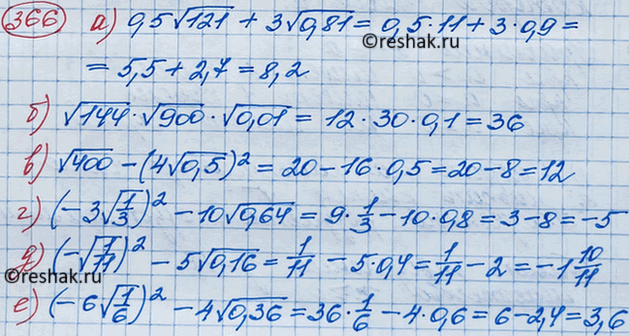 366 а) 0,5√121 + 3√0,81 = 0,5·11 + 3·0,9 =
©reshak.ru
= 5,5 + 2,7 = 8,2
б) √144·√900·√0,01 = 12·30·0,1 = 36
в) √400 − (4√0,5)² = 20 − 16·0,5 = 20 − 8 = 12
г) (−3√1/3)² − 10√0,64 = 9·1/3 − 10·0,8 = 3 − 8 = −5
д) (−√1/11)² − 5√0,16 = 1/11 − 5·0,4 = 1/11 − 2 = −1 10/11
е) (−6√1/6)² − 4√0,36 = 36·1/6 − 4·0,6 = 6 − 2,4 = 3,6
©reshak.ru
©reshak.ru